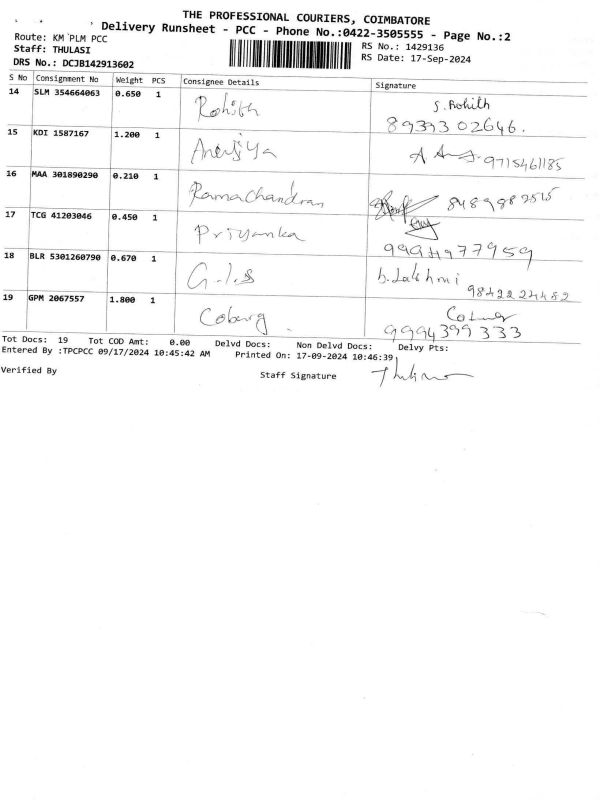 THE PROFESSIONAL COURIERS, COIMBATORE
Delivery Runsheet - PCC - Phone No.:0422-3505555 - Page No.:2
Route: KM PLM PCC
RS No.: 1429136
Staff: THULASI
RS Date: 17-Sep-2024
DRS No.: DCJB142913602
S No Consignment No Weight PCS Consignee Details Signature
14 SLM 354664063 0.650 1 Rohith S. Rohith
8939302646.
15 KDI 1587167 1.200 1 9715461185
16 MAA 301890290 0.210 1 Ramachandran 8489882515
17 TCG 41203046 0.450 1 Priyanka
9994977959
18 BLR 5301260790 0.670 1 G.I.S b. Lakshmi
9842224482
19 GPM 2067557 1.800 1 Coburg
9994399333
Tot Docs: 19 Tot COD Amt: 0.00 Delvd Docs: Non Delvd Docs: Delvy Pts:
Entered By :TPCPCC 09/17/2024 10:45:42 AM Printed On: 17-09-2024 10:46:39
Verified By Staff Signature